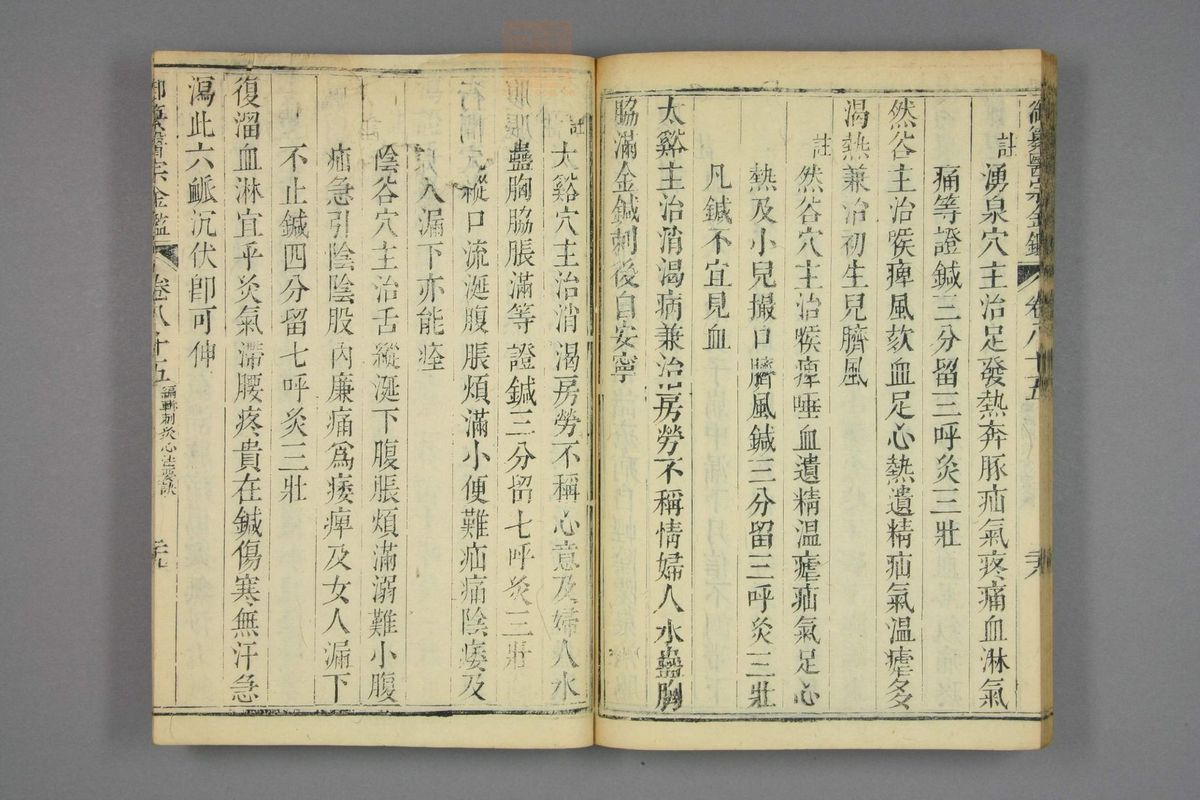 御纂醫宗金鑑 卷八十五 天
註 湧泉穴主治足發熱奔豚疝氣疼痛血淋氣
痛等證鍼三分留三呼灸三壯
然谷主治喉痺風欬血足心熱遺精疝氣溫瘧多
渴熱兼治初生兒臍風
註 然谷穴主治喉痺唾血遺精溫瘧疝氣足心
熱及小兒撮口臍風鍼三分留三呼灸三壯
凡鍼不宜見血
太谿主治消渴病兼治房勞不稱情婦人水蠱胸
脇滿金鍼刺後自安寧
註 太谿穴主治消渴房勞不稱心意及婦人水
蠱胸脇脹滿等證鍼三分留七呼灸三壯
縱口流涎腹脹煩滿小便難疝痛陰痿及
人漏下亦能痊
陰谷穴主治舌縱涎下腹脹煩滿溺難小腹
痛急引陰陰股內廉痛爲痿痺及女人漏下
不止鍼四分留七呼灸三壯
復溜血淋宜乎灸氣滯腰疼貴在鍼傷寒無汗急
瀉此六衇沉伏卽可伸
御纂醫宗金鑑 卷八十五 編輯刺灸心法要訣 芄